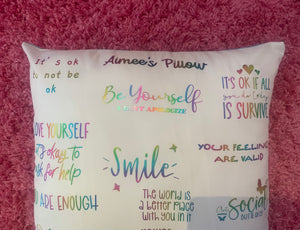 It's ok
to not be
ok
Aimee's Pillow
IT'S OK IF ALL
you do today
IS SURVIVE
Be Yourself
DON'T APOLOGIZE
LOVE YOURSELF
it's okay to
ask for help
Smile
YOUR FEELINGS
ARE VALID
YOU ARE ENOUGH
The world is
a better place
with you in it
Social